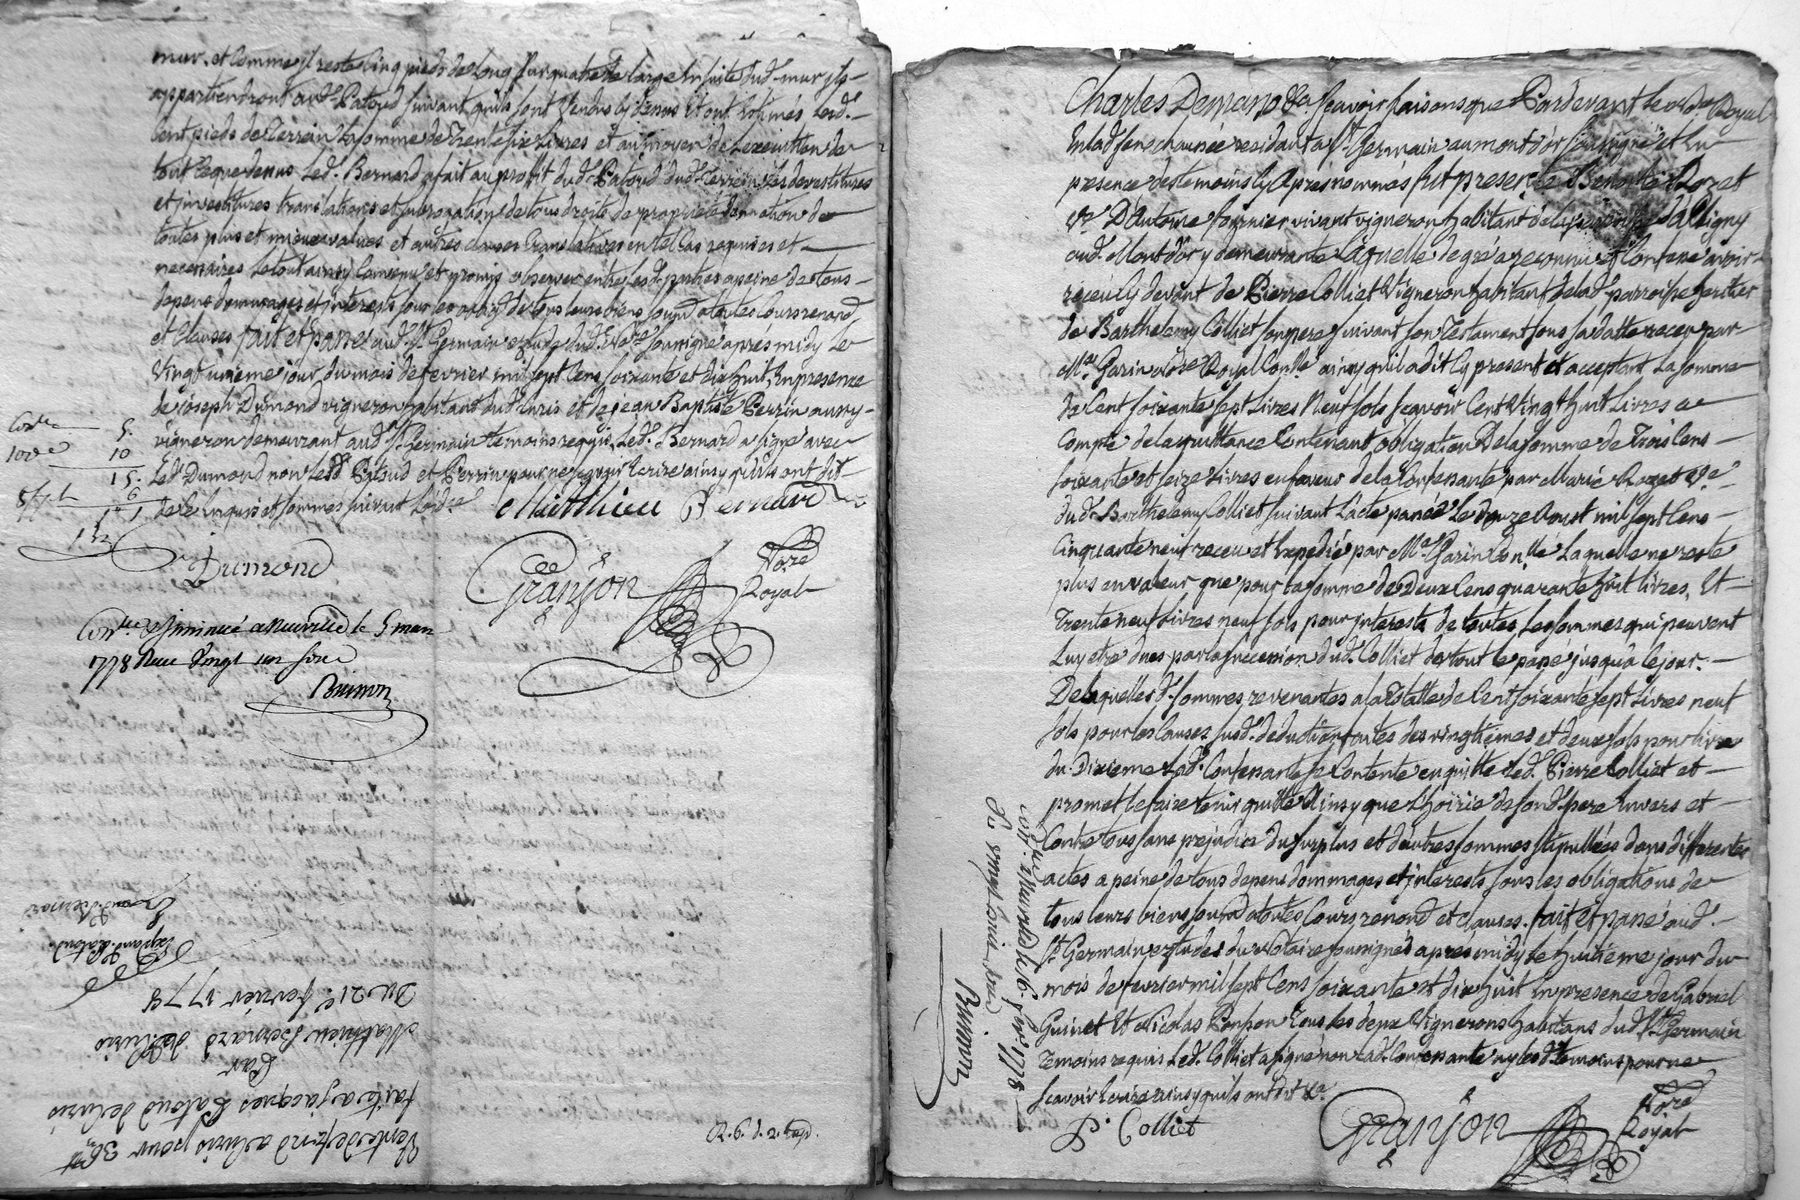 mur, et Comme il reste Cinq pieds de Long sur quatre de large Ensuite dud. mur ils
appartiendront aud. Patoud suivant quils sont Vendus cy dessus Et ont Estimés Lesd.
Cent pieds de Terrein La somme de Trente six Livres et au moyen de Lexecution de
tout Ce que dessus Led. Bernard a fait au proffit dud. Patoud dud. Terrein Les devestitures
et investitures translations et subrogations de tous droits de propriété donnation de
toutes plus et mieux values et autres clauses translatives en tel Cas requises et
necessaires Le tout ainsy Convenu et promis observer entre Lesd. parties a peine de tous
depens dommages et interests sous les oblig. de tous leurs biens soumō. a toutes Cours renond.
et Clauses fait et passé aud. St. Germain etude dud. No.re soussigné apres midy Le
Vingt unieme jour du mois de fevrier mil sept Cens soixante et dix huit, En presence
de joseph Dumond vigneron habitant dud. Curis et de jean Baptiste Perrin aussy
vigneron demeurant aud. St. Germain temoins requis, Led. Bernard a signé avec
Led. Dumond non Lesd. Patoud et Perrin pour ne sçavoir Ecrire ainsy quils ont dit
de Ce Enquis et sommés suivant L'ord.ce
5.
10
15.
6
Matthieu Bernard
Dumond
Granjon
No.re
Royal
Con.lle & insinué a Neuville le 5 mars
1778 Reçu Vingt un sous
Brunon
R. 6. d. 2. exp.
Vente de fond a Curis pour 36 lt
faite a jacques Patoud de Curis
Par
Mathieu Bernard de Curis
Du 21e. fevrier 1778
Charles Demanoz &a. sçavoir faisons que Pardevant le no.re Royal
En lad. senechaussée residant a St. Germain au mont d'or soussigné et En
presence des temoins Cy Apres nommés fut presente Benoite Rozet
V.e D'Antoine fournier vivant vigneron habitant de la parroisse d'Alligny
aud. Mont d'or y demeurante Laquelle de gré a reconnu et Confessé avoir
receu Cy devant de Pierre Colliet Vigneron habitant de lad. parroisse heritier
de Barthelemy Colliet son pere suivant son Testament sous sa datte receu par
Me. Garin no.re Royal Con.lle ainsy quil a dit Cy present et acceptant La somme
de Cent soixante sept Livres Neuf sols sçavoir Cent Vingt huit Livres a
Compte de la quittance Contenant obligation De la somme de Trois Cens
soixante et seize Livres en faveur de la Confessante par Marie Rozet V.e
dud. Barthelemy Colliet suivant L'acte passé Le douze Aoust mil sept Cens
Cinquante neuf receu et Expedié par Me. Garin Con.lle Laquelle ne reste
plus en valeur que pour La somme de Deux Cens quarante huit Livres, Et
Trente neuf Livres neuf sols pour interests de toutes Les sommes qui peuvent
Luy etre dues par la succession dud. Colliet de tout le passé jusqu'a le jour.
Desquelles d. sommes revenantes a la Totalle de Cent soixante sept Livres neuf
sols pour les Causes susd. deduction faites des vingtiemes et deux sols pour livre
du Dixieme Lad. Confessante se Contente en quitte Led. Pierre Colliet et
promet le faire tenir quitte Ainsy que L'hoirie de fond. pere Envers et
Contre tous sans prejudice du surplus et d'autres sommes stipullées dans differentes
actes a peine de tous depens dommages et interests sous les obligations de
tous leurs biens soumō. a toutes Cours renond. et clauses. fait et passé aud.
St. Germain etude du notaire soussigné apres midy le huitieme jour du
mois de fevrier mil sept Cens soixante et dix huit En presence de Gabriel
Guinet Et Nicolas Ponson Tous les deux Vignerons habitans dud. St. Germain
Temoins requis Led. Colliet a signé non Lad. Confessante ny les d. temoins pour ne
sçavoir Ecrire ainsy quils ont dit &a.
P. Colliet
Granjon
No.re
Royal
Brunon